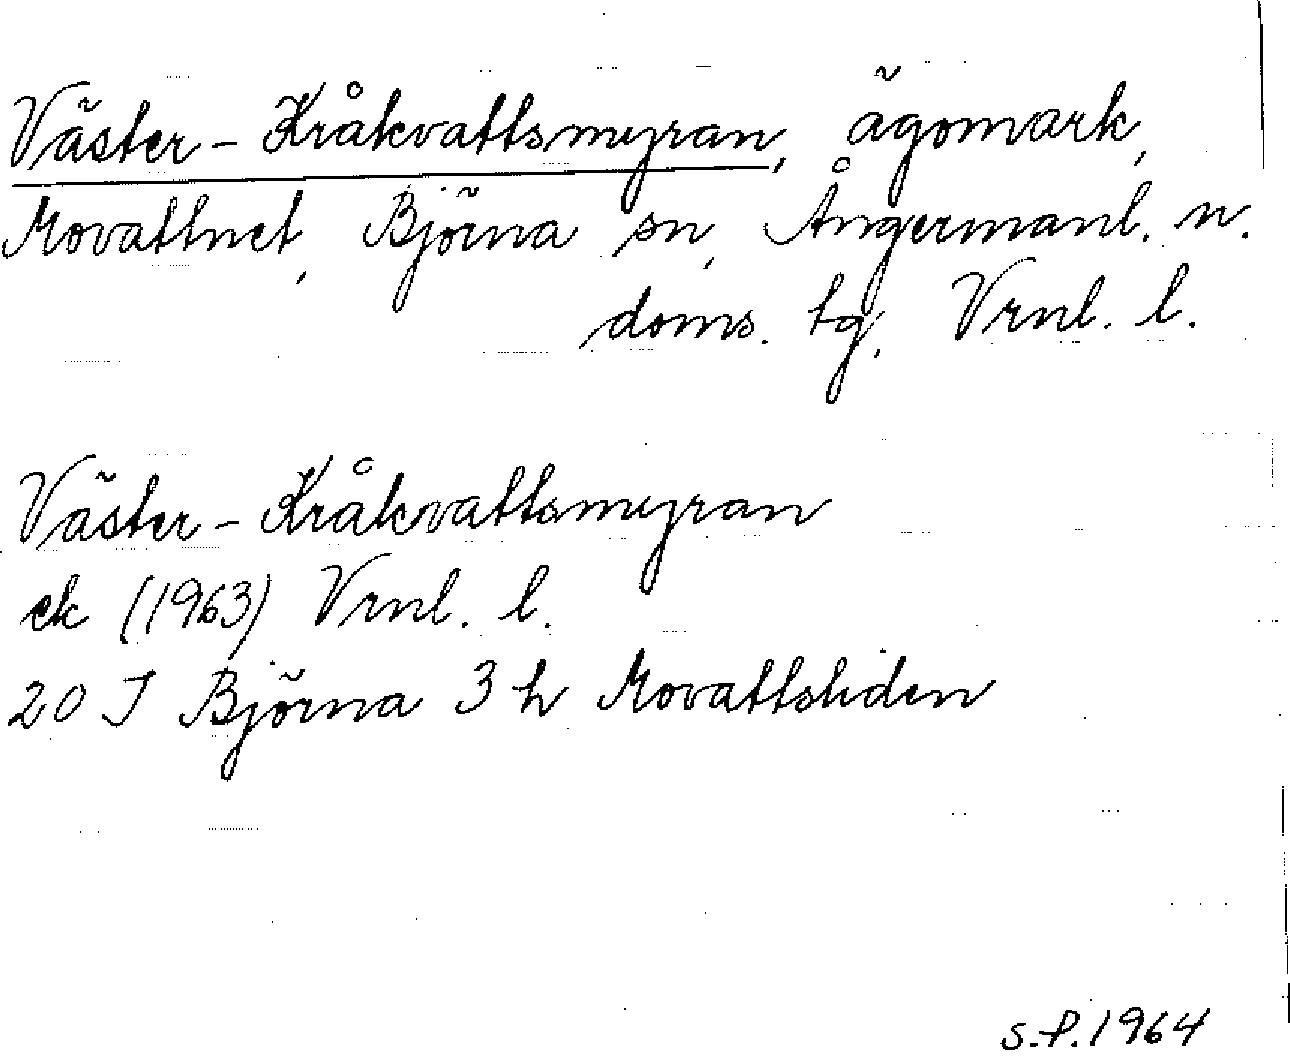 Väster-Kråkvattsmyran, ägomark,
Movattnet, Björna sn, Ångermanl. n.
doms. tg, Vrnl. l.
Väster-Kråkvattsmyran
ek (1963) Vrnl. l.
20 J Björna 3 h Movattsliden
S.P. 1964